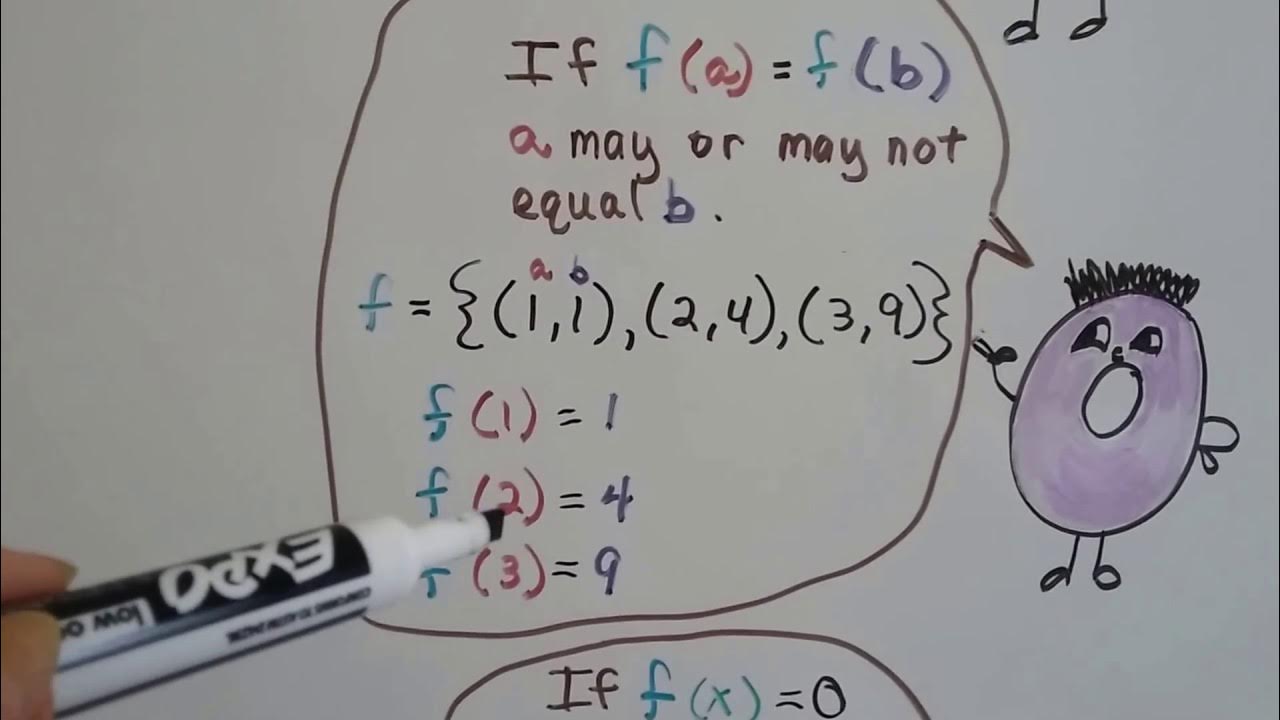 If f(a) = f(b)
a may or may not
equal b.
a b
f = {(1,1),(2,4),(3,9)}
f(1) = 1
f(2) = 4
f(3) = 9
EXPO
low o
If f(x) = 0